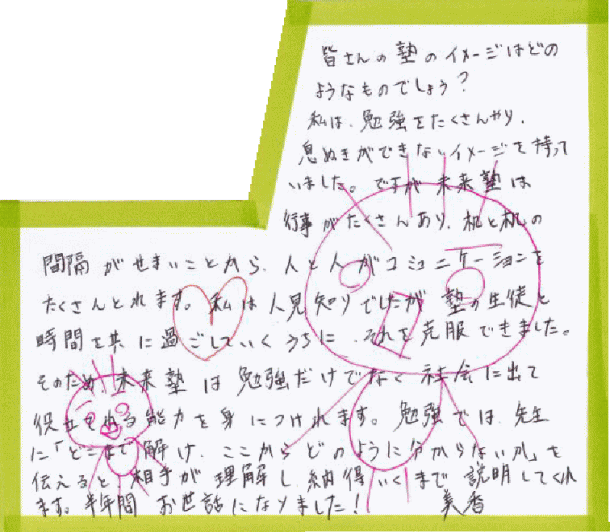 皆さんの塾のイメージはどの
ようなものでしょう?
私は、勉強をたくさんやり、
息ぬきができないイメージを持って
いました。ですが未来塾は
行事がたくさんあり、机と机の
間隔がせまいことから、人と人がコミュニケーションを
たくさんとれます。私は人見知りでしたが塾の生徒と
時間を共に過ごしていくうちに、それを克服できました。
そのため、未来塾は勉強だけでなく社会に出て
役立てる能力を身につけれます。勉強では、先生
に「どこまで解け、ここからどのように分からないか」を
伝えると、相手が理解し納得いくまで説明してくれ
ます。半年間お世話になりました! 美香